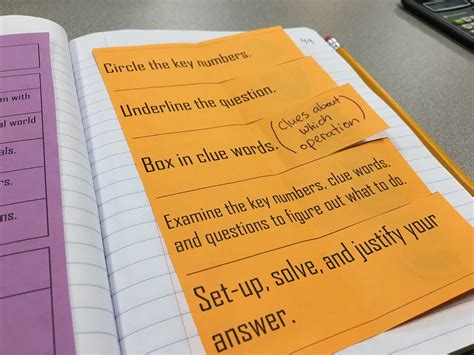 m with
al world
als.
rs.
ns.
Circle the key numbers.
Underline the question.
Box in clue words. (clues about
which
operation)
Examine the key numbers, clue words,
and questions to figure out what to do.
Set-up, solve, and justify your
answer.